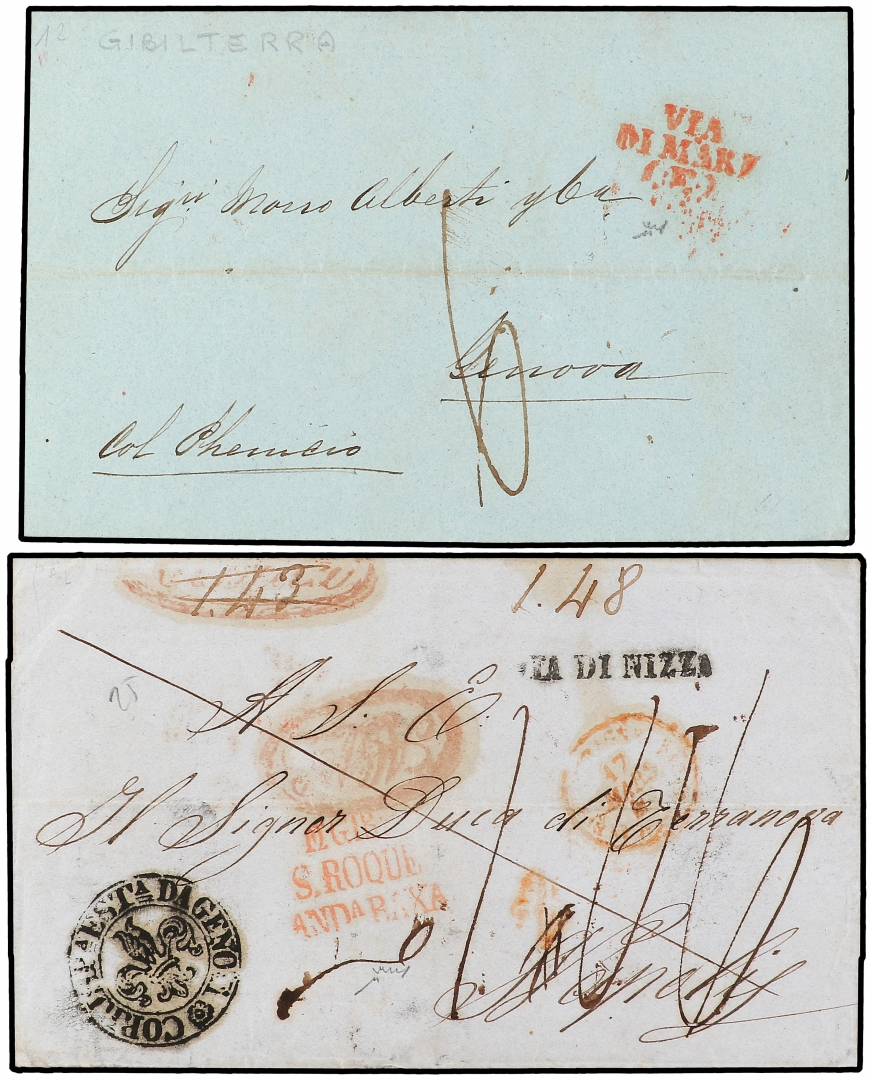 12
GIBILTERRA
VIA
DI MARE
(E)
Sigri Morro Alberti y Ca
Genova
Col Phenicio
1.43
1.48
VIA DI NIZZA
25
A S. E.
Il Signor Duca di Terranova
17
S. ROQUE
ANDA BAXA
CORR. EST.A DA GENOVA
Napoli